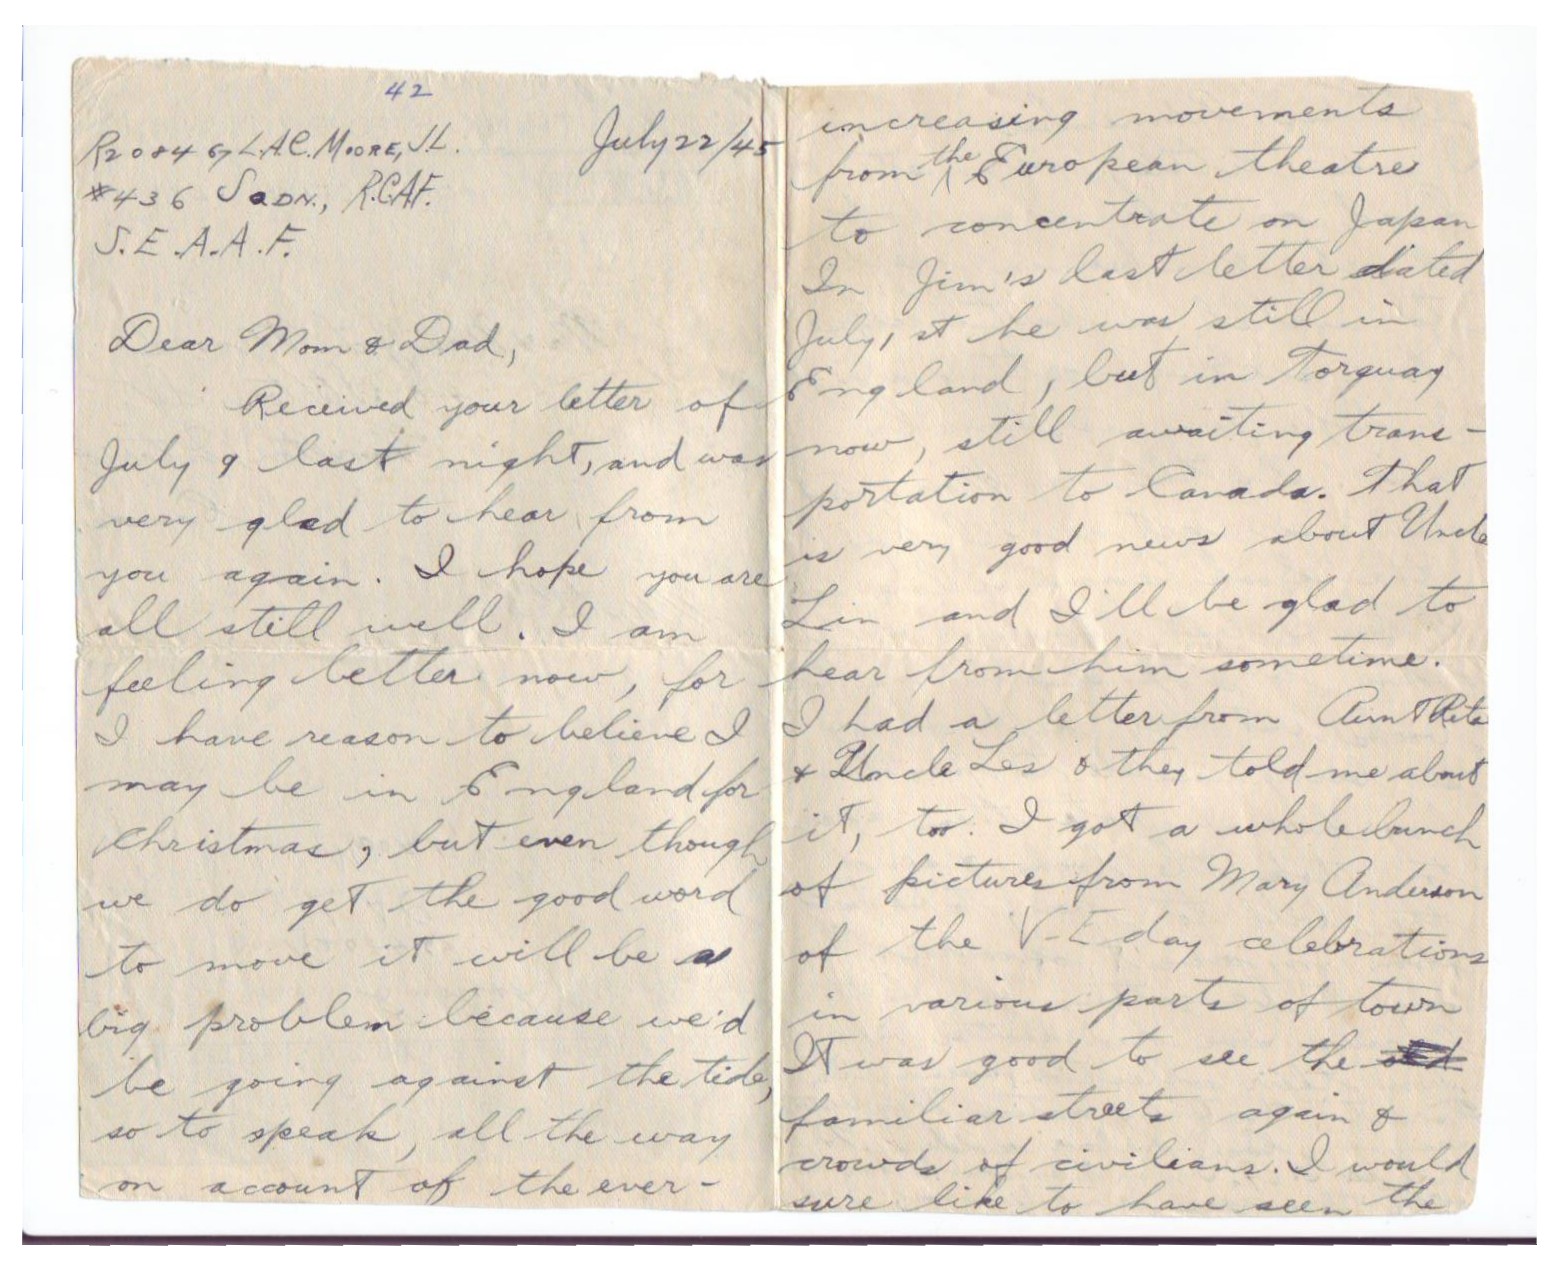 42
R208467 L.A.C. Moore, J.L. July 22/45
#436 Sqdn., R.C.A.F.
S.E.A.A.F.
Dear Mom & Dad,
Received your letter of
July 9 last night, and was
very glad to hear from
you again. I hope you are
all still well. I am
feeling better now, for
I have reason to believe I
may be in England for
Christmas, but even though
we do get the good word
to move it will be a
big problem because we'd
be going against the tide,
so to speak, all the way
on account of the ever-
increasing movements
from the European theatre
to concentrate on Japan
In Jim's last letter dated
July 1st he was still in
England, but in Torquay
now, still awaiting trans-
portation to Canada. That
is very good news about Uncle
Lin and I'll be glad to
hear from him sometime.
I had a letter from Aunt Rita
& Uncle Les & they told me about
it, too. I got a whole bunch
of pictures from Mary Anderson
of the V-E day celebrations
in various parts of town
It was good to see the
familiar streets again &
crowds of civilians. I would
sure like to have seen the